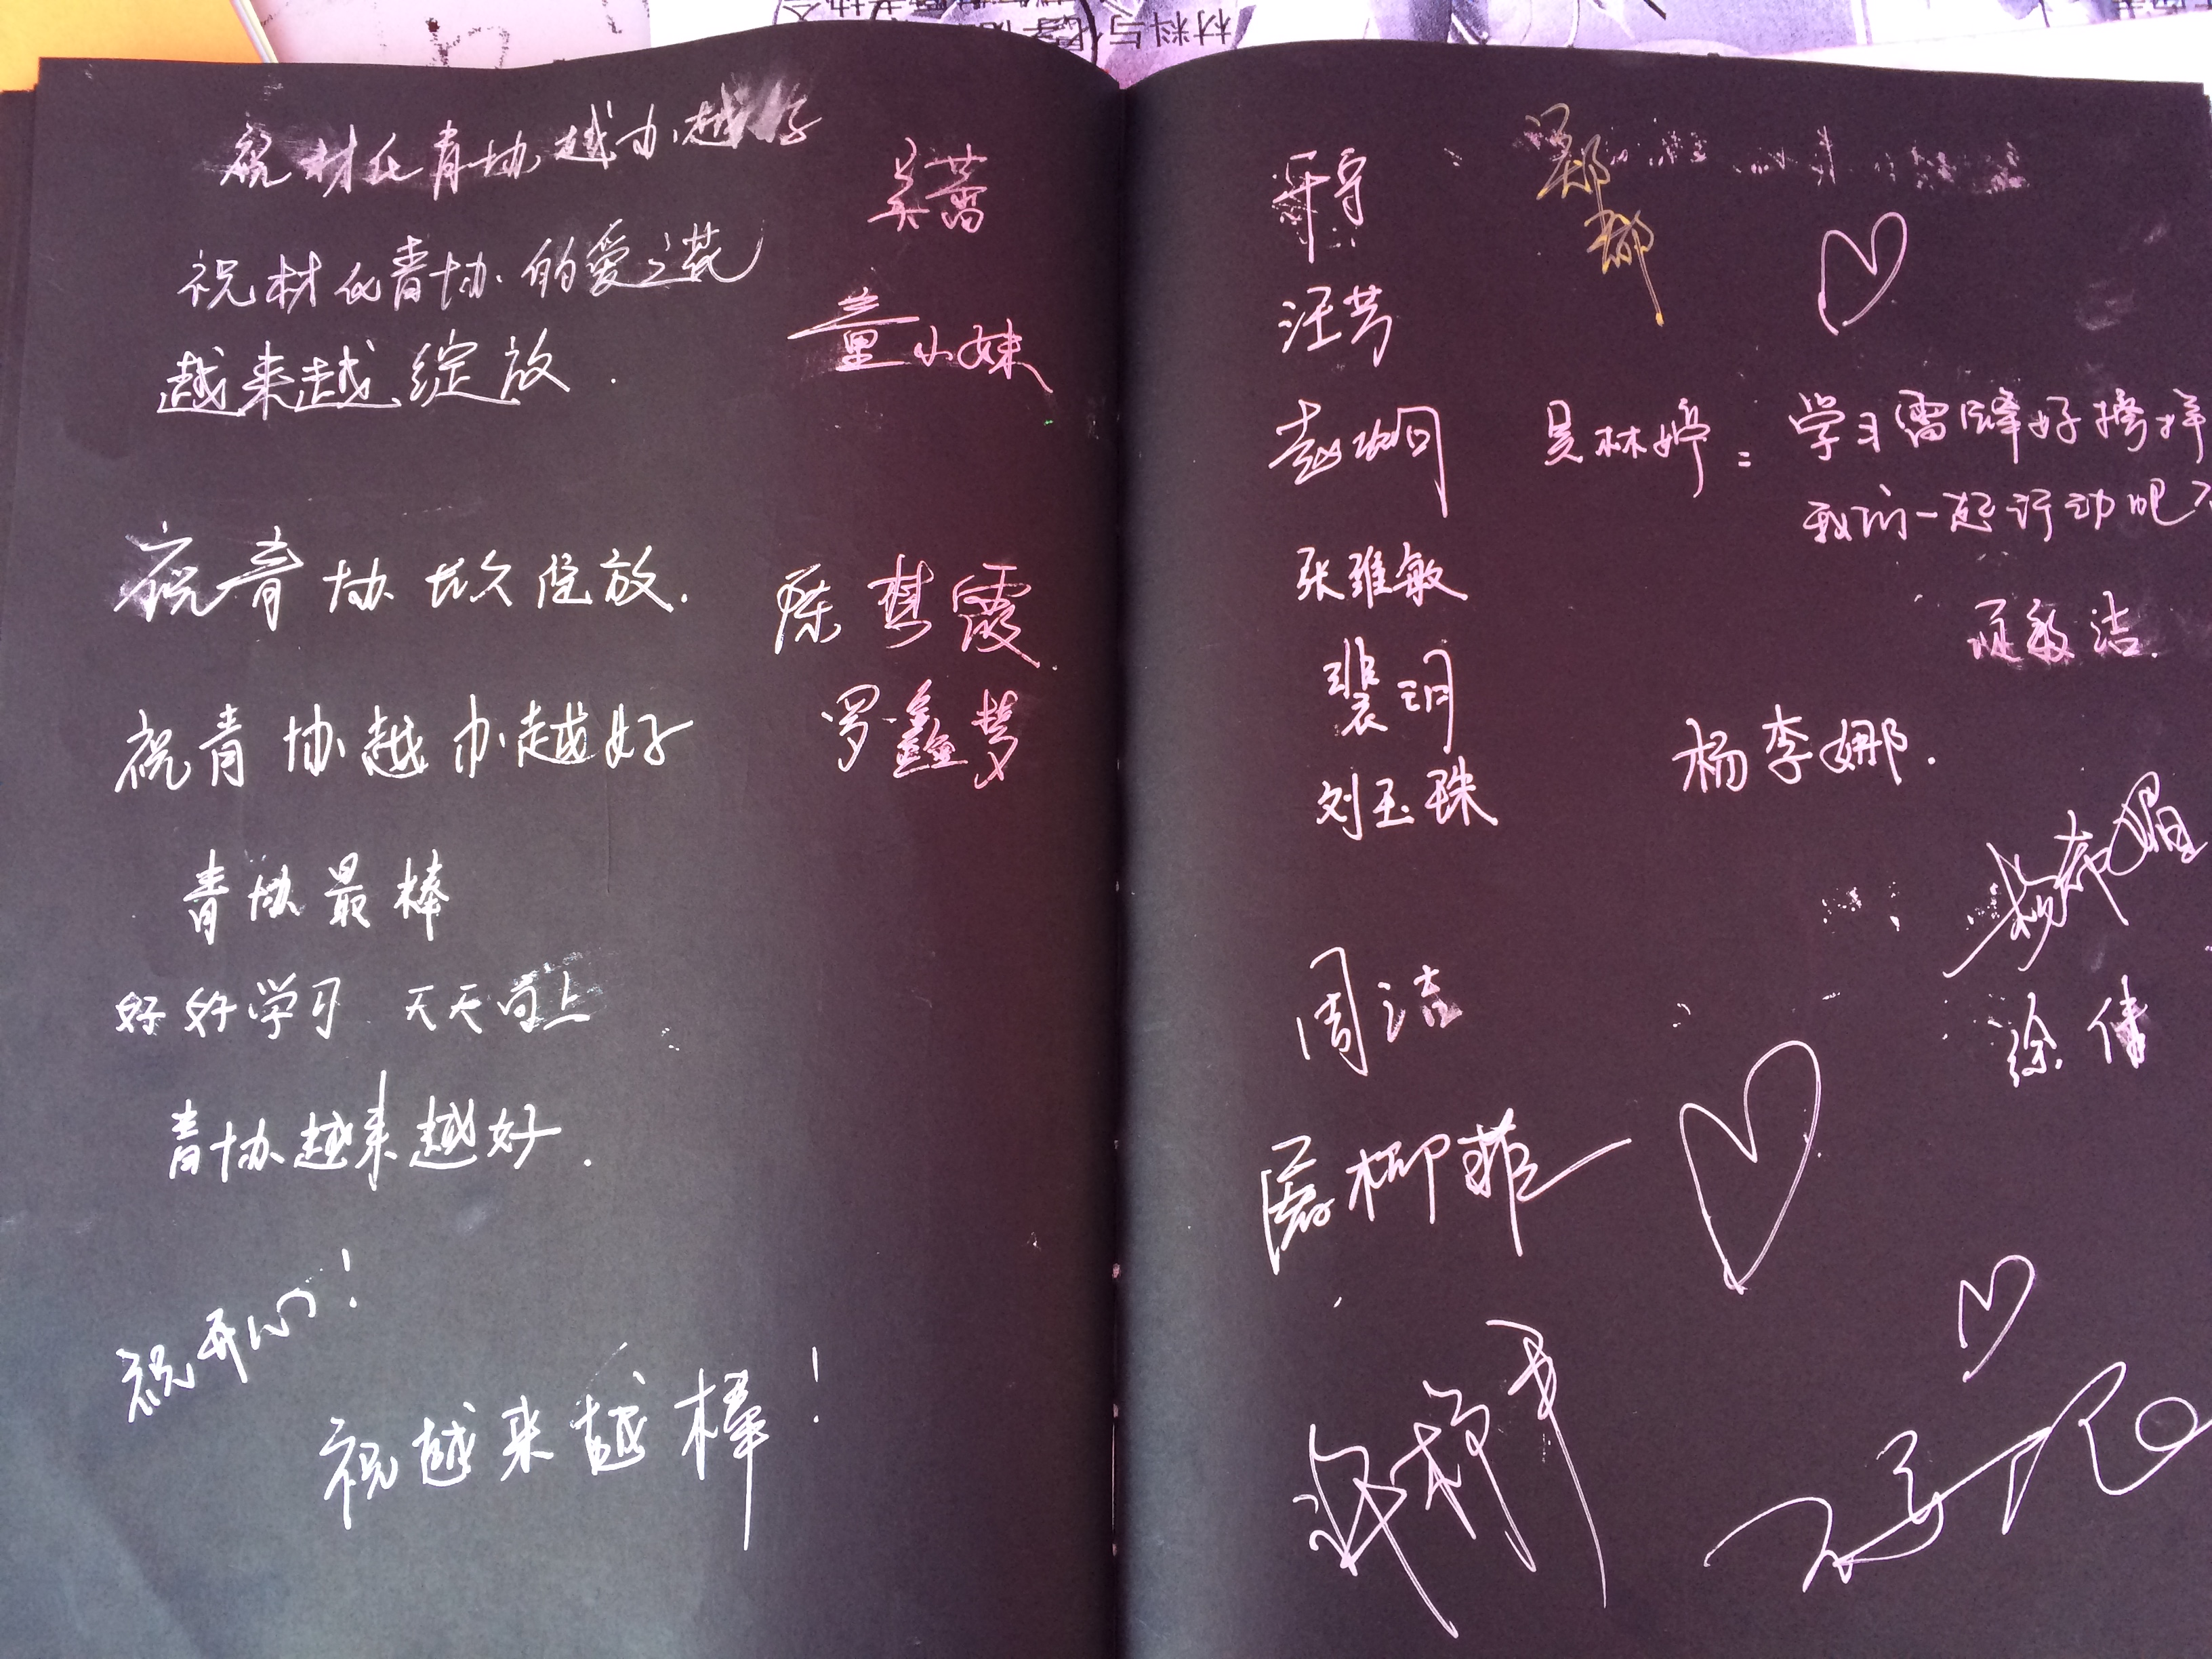 祝材化青协越办越好
吴蕾
祝材化青协的爱之花
越来越绽放.
童小妹
祝青协永久绽放.
陈梦霞
祝青协越办越好
罗鑫梦
青协最棒
好好学习 天天向上
青协越来越好.
祝开心!
祝越来越棒!
汪芳
吴林婷: 学习雷锋好榜样
我们一起行动吧
张雅敏
敏洁.
裴玥
杨李娜.
刘玉珠
周洁
徐倩
柳菲
材料与化学